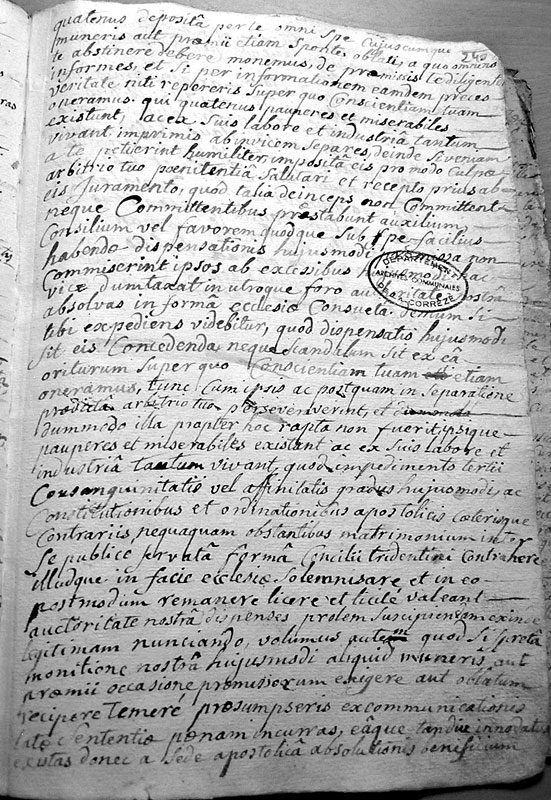 240
quatenus depositâ per te omni Spe Cujuscumque
muneris aut præmii etiam Sponte oblati, a quo omnino
te abstinere debere monemus, de præmissis te diligenter
informes, et Si per informationem eamdem preces
veritate niti repereris Super quo Conscientiam tuam
oneramus. qui quatenus pauperes et miserabiles
existunt, ac ex Suis labore et industriâ tantum
vivant imprimis ab invicem Separes, deinde Si veniam
a te petierint humiliter, impositâ eis pro modo Culpæ
arbitrio tuo pœnitentiâ Salutari et recepto prius ab
eis Juramento, quod talia deinceps non Committent
neque Committentibus præstabunt auxilium,
Consilium vel favorem quodque Sub Spe facilius
habendæ dispensationis hujusmodi non
Commiserint ipsos ab excessibus hac
vice dumtaxat in utroque foro nostra
absolvas in formâ ecclesiæ Consueta demum Si
tibi expediens videbitur, quod dispensatis hujusmodi
Sit eis Concedenda, neque Scandalum Sit ex eâ
oriturum Super quo Conscientiam tuam etiam
oneramus, tunc Cum ipsis ac postquam in Separatione
prædicta arbitrio tuo perseververint, et
dummodo illa propter hoc rapta non fuerit, ipsique
pauperes et miserabiles existant ac ex Suis labore et
industriâ tantum vivant, quod impedimento tertii
Consanguinitatis vel affinitatis gradus hujusmodi, ac
Constitutionibus et ordinationibus apostolicis cæterisque
Contrariis nequaquam obstantibus matrimonium inter
Se publice Servatâ formâ Concilii tridentini Contrahere
illudque in facie ecclesiæ Solemnisare et in eo
postmodum remanere licere et licitè valeant
auctoritate nostrâ dispenses prolem Suscipiendam exinde
legitimam nunciando, volumus autem quod Si spretâ
monitione nostrâ hujusmodi aliquid muneris, aut
præmii occasione præmissorum exigere aut oblatum
recipere Temere præsumpseris excommunicationis
latæ Sententiæ pœnam incurras, eâque tandiu innodatus
existas donec a Sede apostolicâ absolutionis beneficium
DEPARTEMENT
ARCHIVES COMMUNALES
DE LA CORREZE